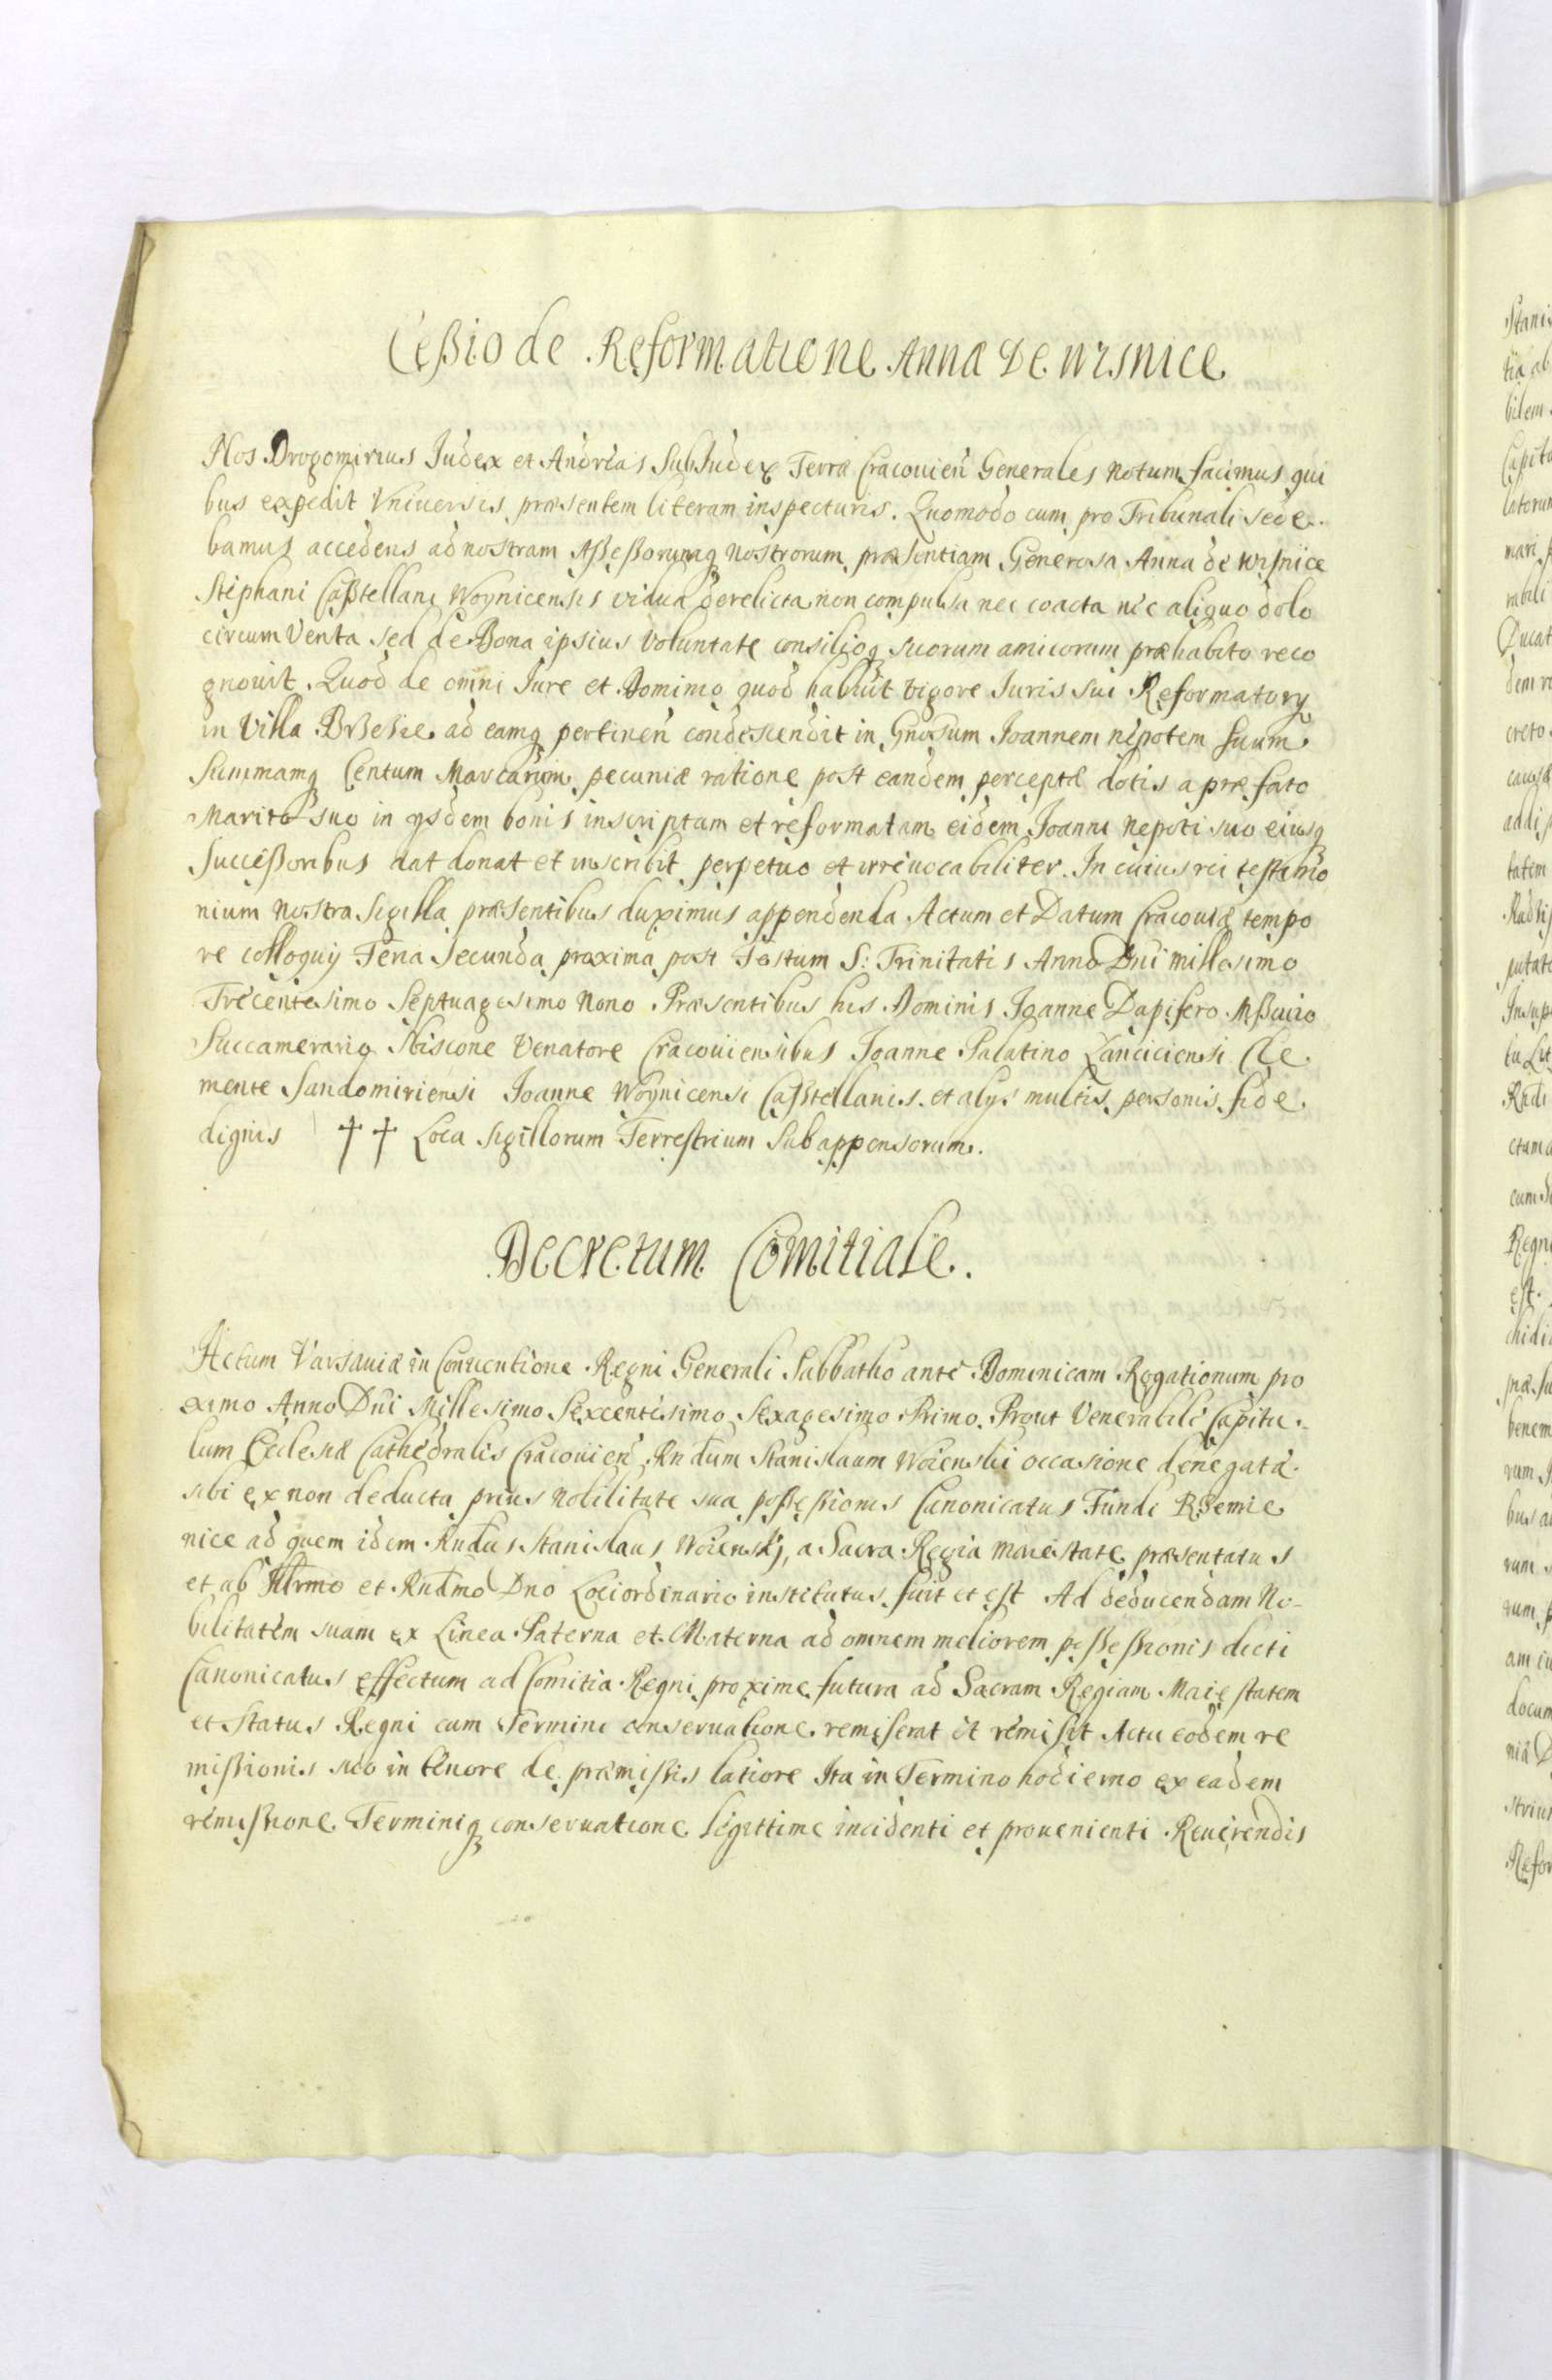 Ceßio de Reformatione Anna De Wisnice
Nos Drogomirius Judex et Andreas SubJudex Terræ Cracouien̄ Generales Notum facimus qui
bus expedit Vniuersis præsentem literam inspecturis. Quomodo cum pro Tribunali sede
bamus accedens ad nostram Aßeßorumq nostrorum præsentiam Generosa Anna de Wisnice
Stephani Caßtellani Woynicensis vidua derelicta non compulsa nec coacta nec aliquo dolo
circumventa sed de Bona ipsius voluntate consilioq suorum amicorum præhabito reco
gnouit. Quod de omni Jure et Dominio quod habuit vigore Juris sui Reformatorij
in Villa ad eamq pertinen̄ condescendit in Gnosum Joannem nepotem suum
Summamq Centum Marcarum pecuniæ ratione post eandem perceptæ dotis a præfato
Marito suo in ijsdem bonis inscriptam et reformatam eidem Joanni Nepoti suo eiusq
Succeßoribus dat donat et inscribit perpetuo et irreuocabiliter. In cuius rei testimo
nium nostra Sigilla præsentibus duximus appendenda Actum et Datum Cracouiæ tempo
re colloquij Feria Secunda proxima post Festum S: Trinitatis Anno Dn̄i millesimo
Trecentesimo Septuagesimo Nono. Præsentibus his Dominis Joanne Dapifero
Succamerario Sbiscone Venatore Cracouiensibus Joanne Palatino Lanciciensi Cle
mente Sandomiriensi Joanne Woynicensi Caßtellanis et alijs multis personis fide
dignis † † Loca Sigillorum Terrestrium Subappensorum.
Decretum Comitiale.
Actum Varsauiæ in Conuentione Regni Generali Sabbatho ante Dominicam Rogationum pro
ximo Anno Dn̄i Millesimo Sexcentesimo Sexagesimo Primo. Prout Venerabile Capitu
lum Ecclesiæ Cathedralis Cracouien̄ Rndum Stanislaum Woienski occasione denegatæ
sibi ex non deducta prius Nobilitate sua poßeßionis Canonicatus Fundi
nice ad quem idem Rndus Stanislaus Woienskj, a Sacra Regia Maiestate præsentatus
et ab Illrmo et Rndmo Dno Loci ordinario institutus fuit et est Ad deducendam No-
bilitatem suam ex Linea Paterna et Materna ad omnem meliorem poßeßionis dicti
Canonicatus effectum ad Comitia Regni proxime futura ad Sacram Regiam Maiestatem
et Status Regni cum Termini conseruatione remiserat et remisit Actu eodem re
mißionis suo in tenore de præmißis latiore Ita in Termino hodierno ex eadem
remißione Terminiq conseruatione legittime incidenti et prouenienti Reuerendis